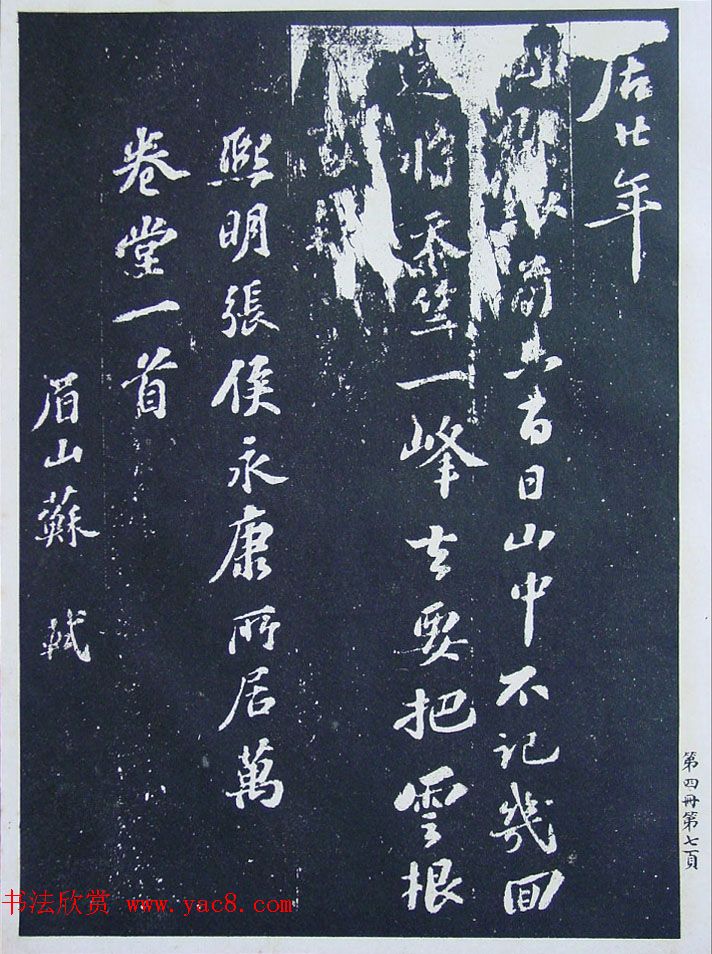 居廿年
眼前日山中不記幾回
將一峰去要把雲根
熙明張侯永康所居萬
卷堂一首
眉山蘇軾
第四冊第七頁
书法欣赏 www.yac8.com